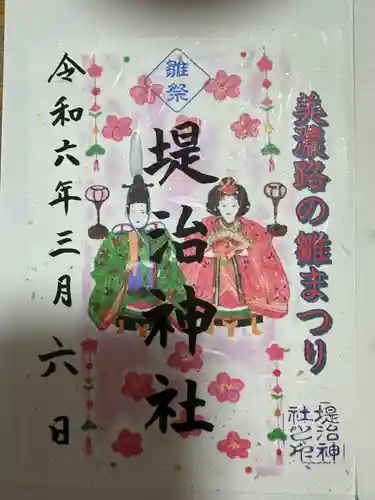 美濃路の雛まつり
雛祭
堤治神社
令和六年三月六日
堤治神
社之印